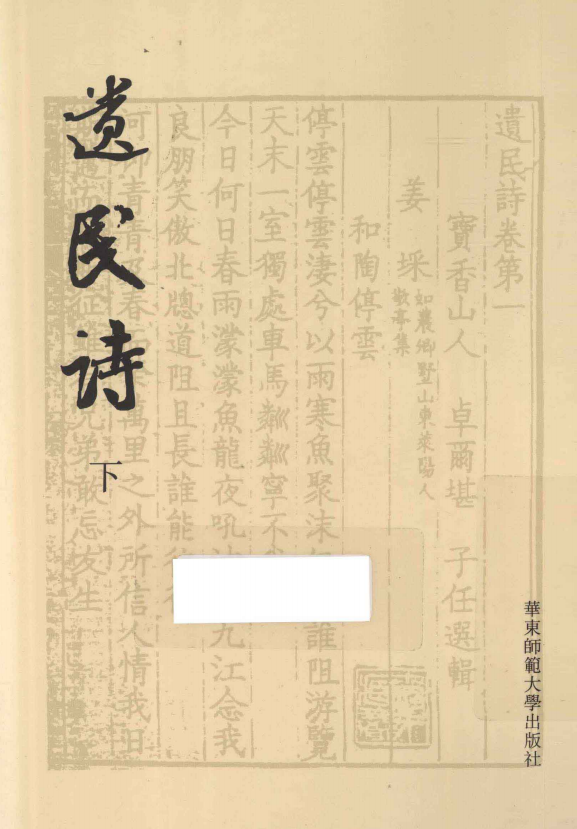 遺民詩
下
遺民詩卷第一
寶香山人　卓爾堪　子任選輯
姜　埰
如農鄉墅山東萊陽人
敬亭集
和陶停雲
停雲停雲淒兮以雨寒魚聚沫
誰阻游覽
天末一室獨處車馬粼粼寧不
今日何日春雨濛濛魚龍夜吼
九江念我
良朋笑傲北牕道阻且長誰能
青青
春
萬里之外所信人情我日
兄弟敢忘友生
華東師範大學出版社